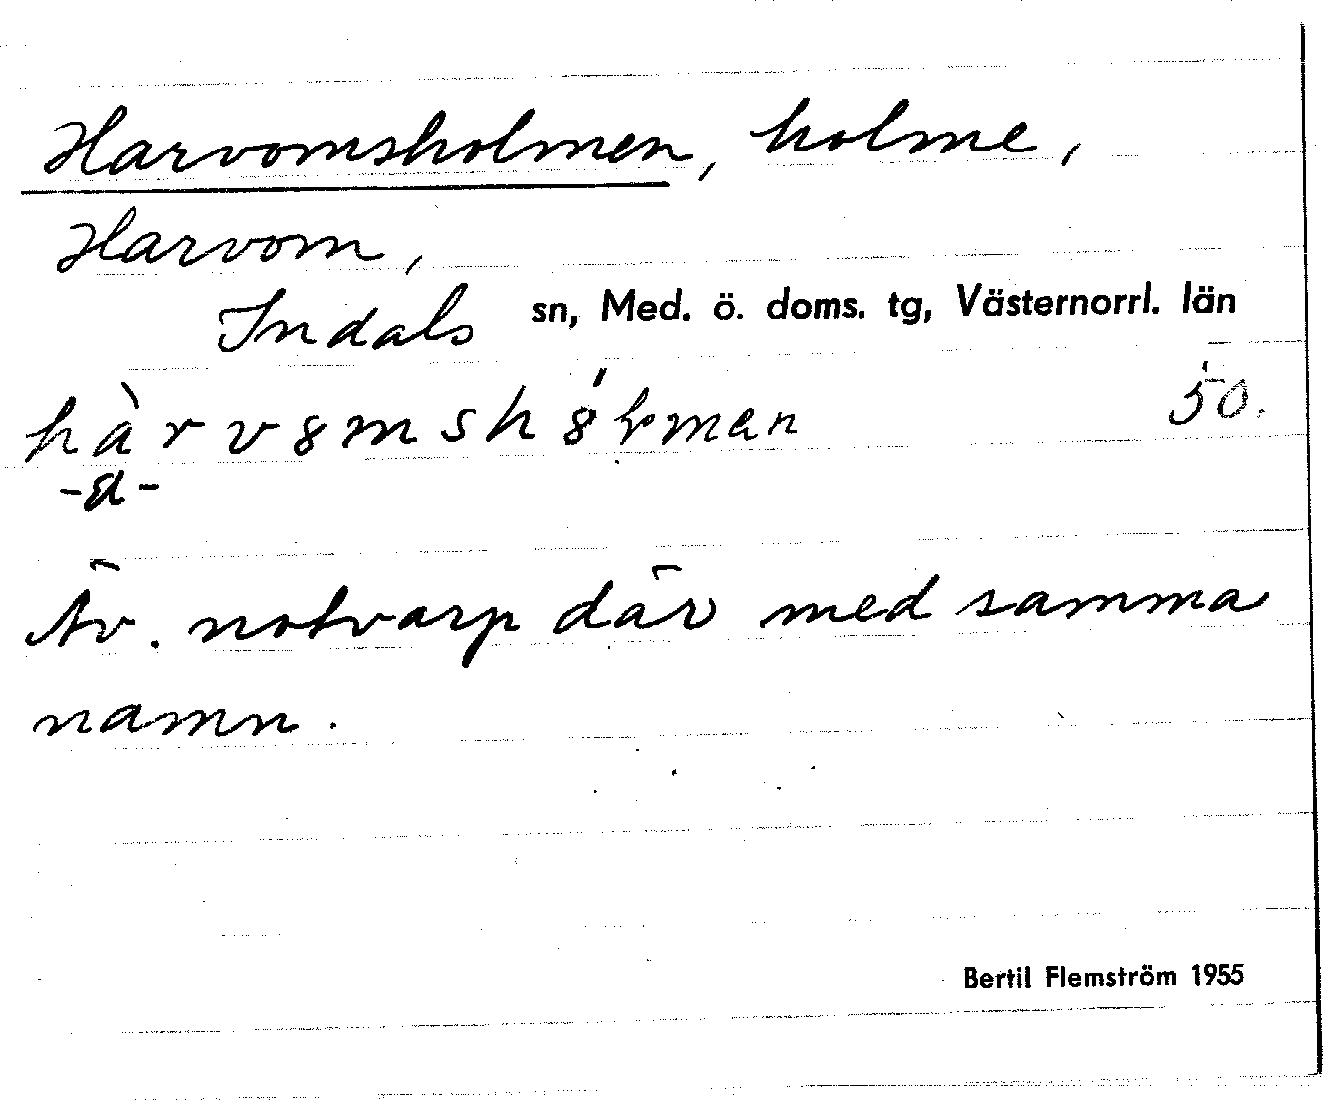 Harvomsholmen, holme,
Harvom,
Indals sn, Med. ö. doms. tg, Västernorrl. län
50.
Äv. notvarp där med samma
namn.
Bertil Flemström 1955